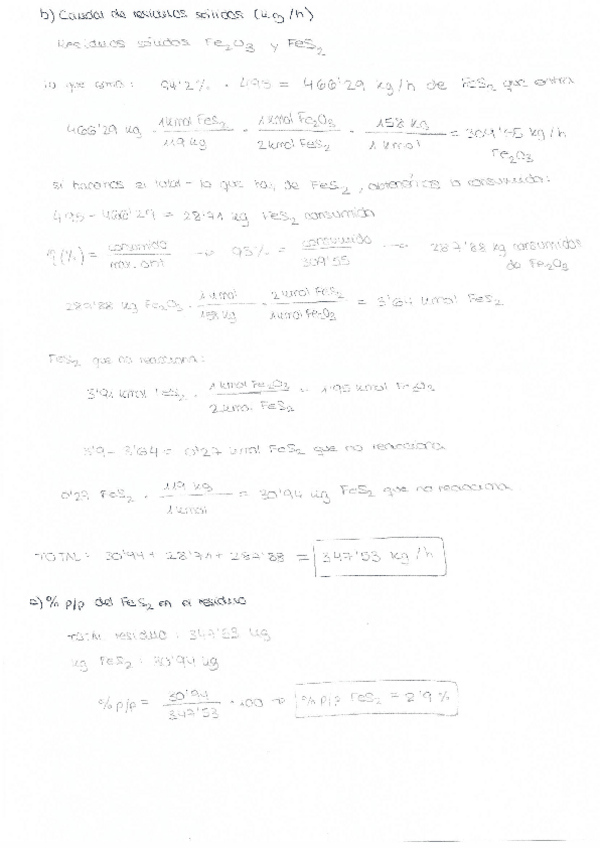 b) Caudal de residuos sólidos (kg/h)
Residuos sólidos Fe2O3 y FeS2
lo que entra: 94'2% · 495 = 466'29 kg/h de FeS2 que entra
466'29 kg · 1 kmol FeS2 / 119 kg · 1 kmol Fe2O3 / 2 kmol FeS2 · 158 kg / 1 kmol = 309'55 kg/h Fe2O3
si hacemos el total - lo que hay de FeS2, obtenemos lo consumido:
495 - 466'29 = 28'71 kg FeS2 consumido
η(%) = consumido / → 95% = consumido / 309'55 → 287'88 kg consumidos de Fe2O3
287'88 kg Fe2O3 · 1 kmol / 158 kg · 2 kmol FeS2 / 1 kmol Fe2O3 = 3'64 kmol FeS2
FeS2 que no reacciona:
kmol FeS2 · 1 kmol Fe2O3 / 2 kmol FeS2 = 1'95 kmol Fe2O3
3'9 - 3'64 = 0'27 kmol FeS2 que no reacciona
FeS2 · 119 kg / 1 kmol = 30'94 kg FeS2 que no reacciona
TOTAL: 30'94 + 28'71 + 287'88 = 347'53 kg/h
c) % p/p del FeS2 en el residuo
total residuo: 347'53 kg
kg FeS2: 30'94 kg
% p/p = 30'94 / 347'53 · 100 → % p/p FeS2 = %